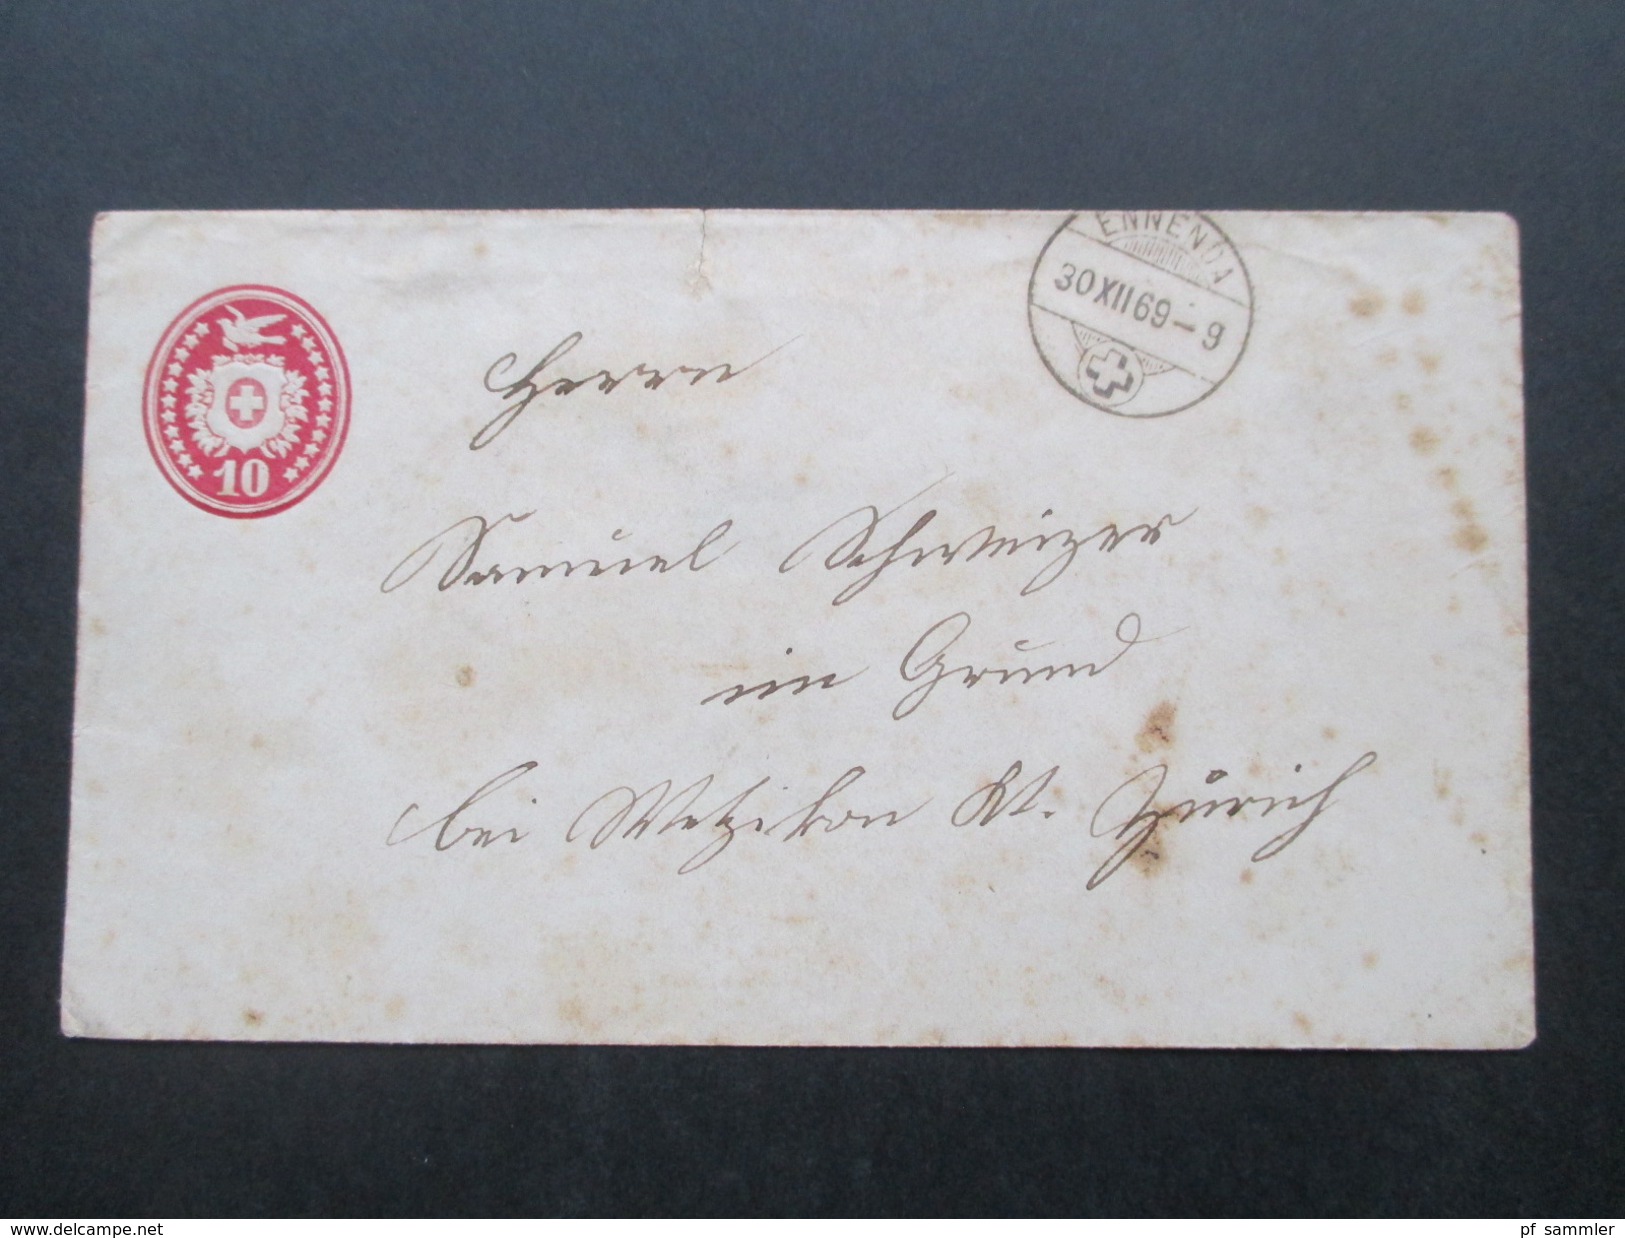 10
ENNENDA
30 XII 69 – 9
Herrn
Samuel Schweizer
im Grund
bei Wetzikon Kt. Zürich
www.delcampe.net
pf_sammler